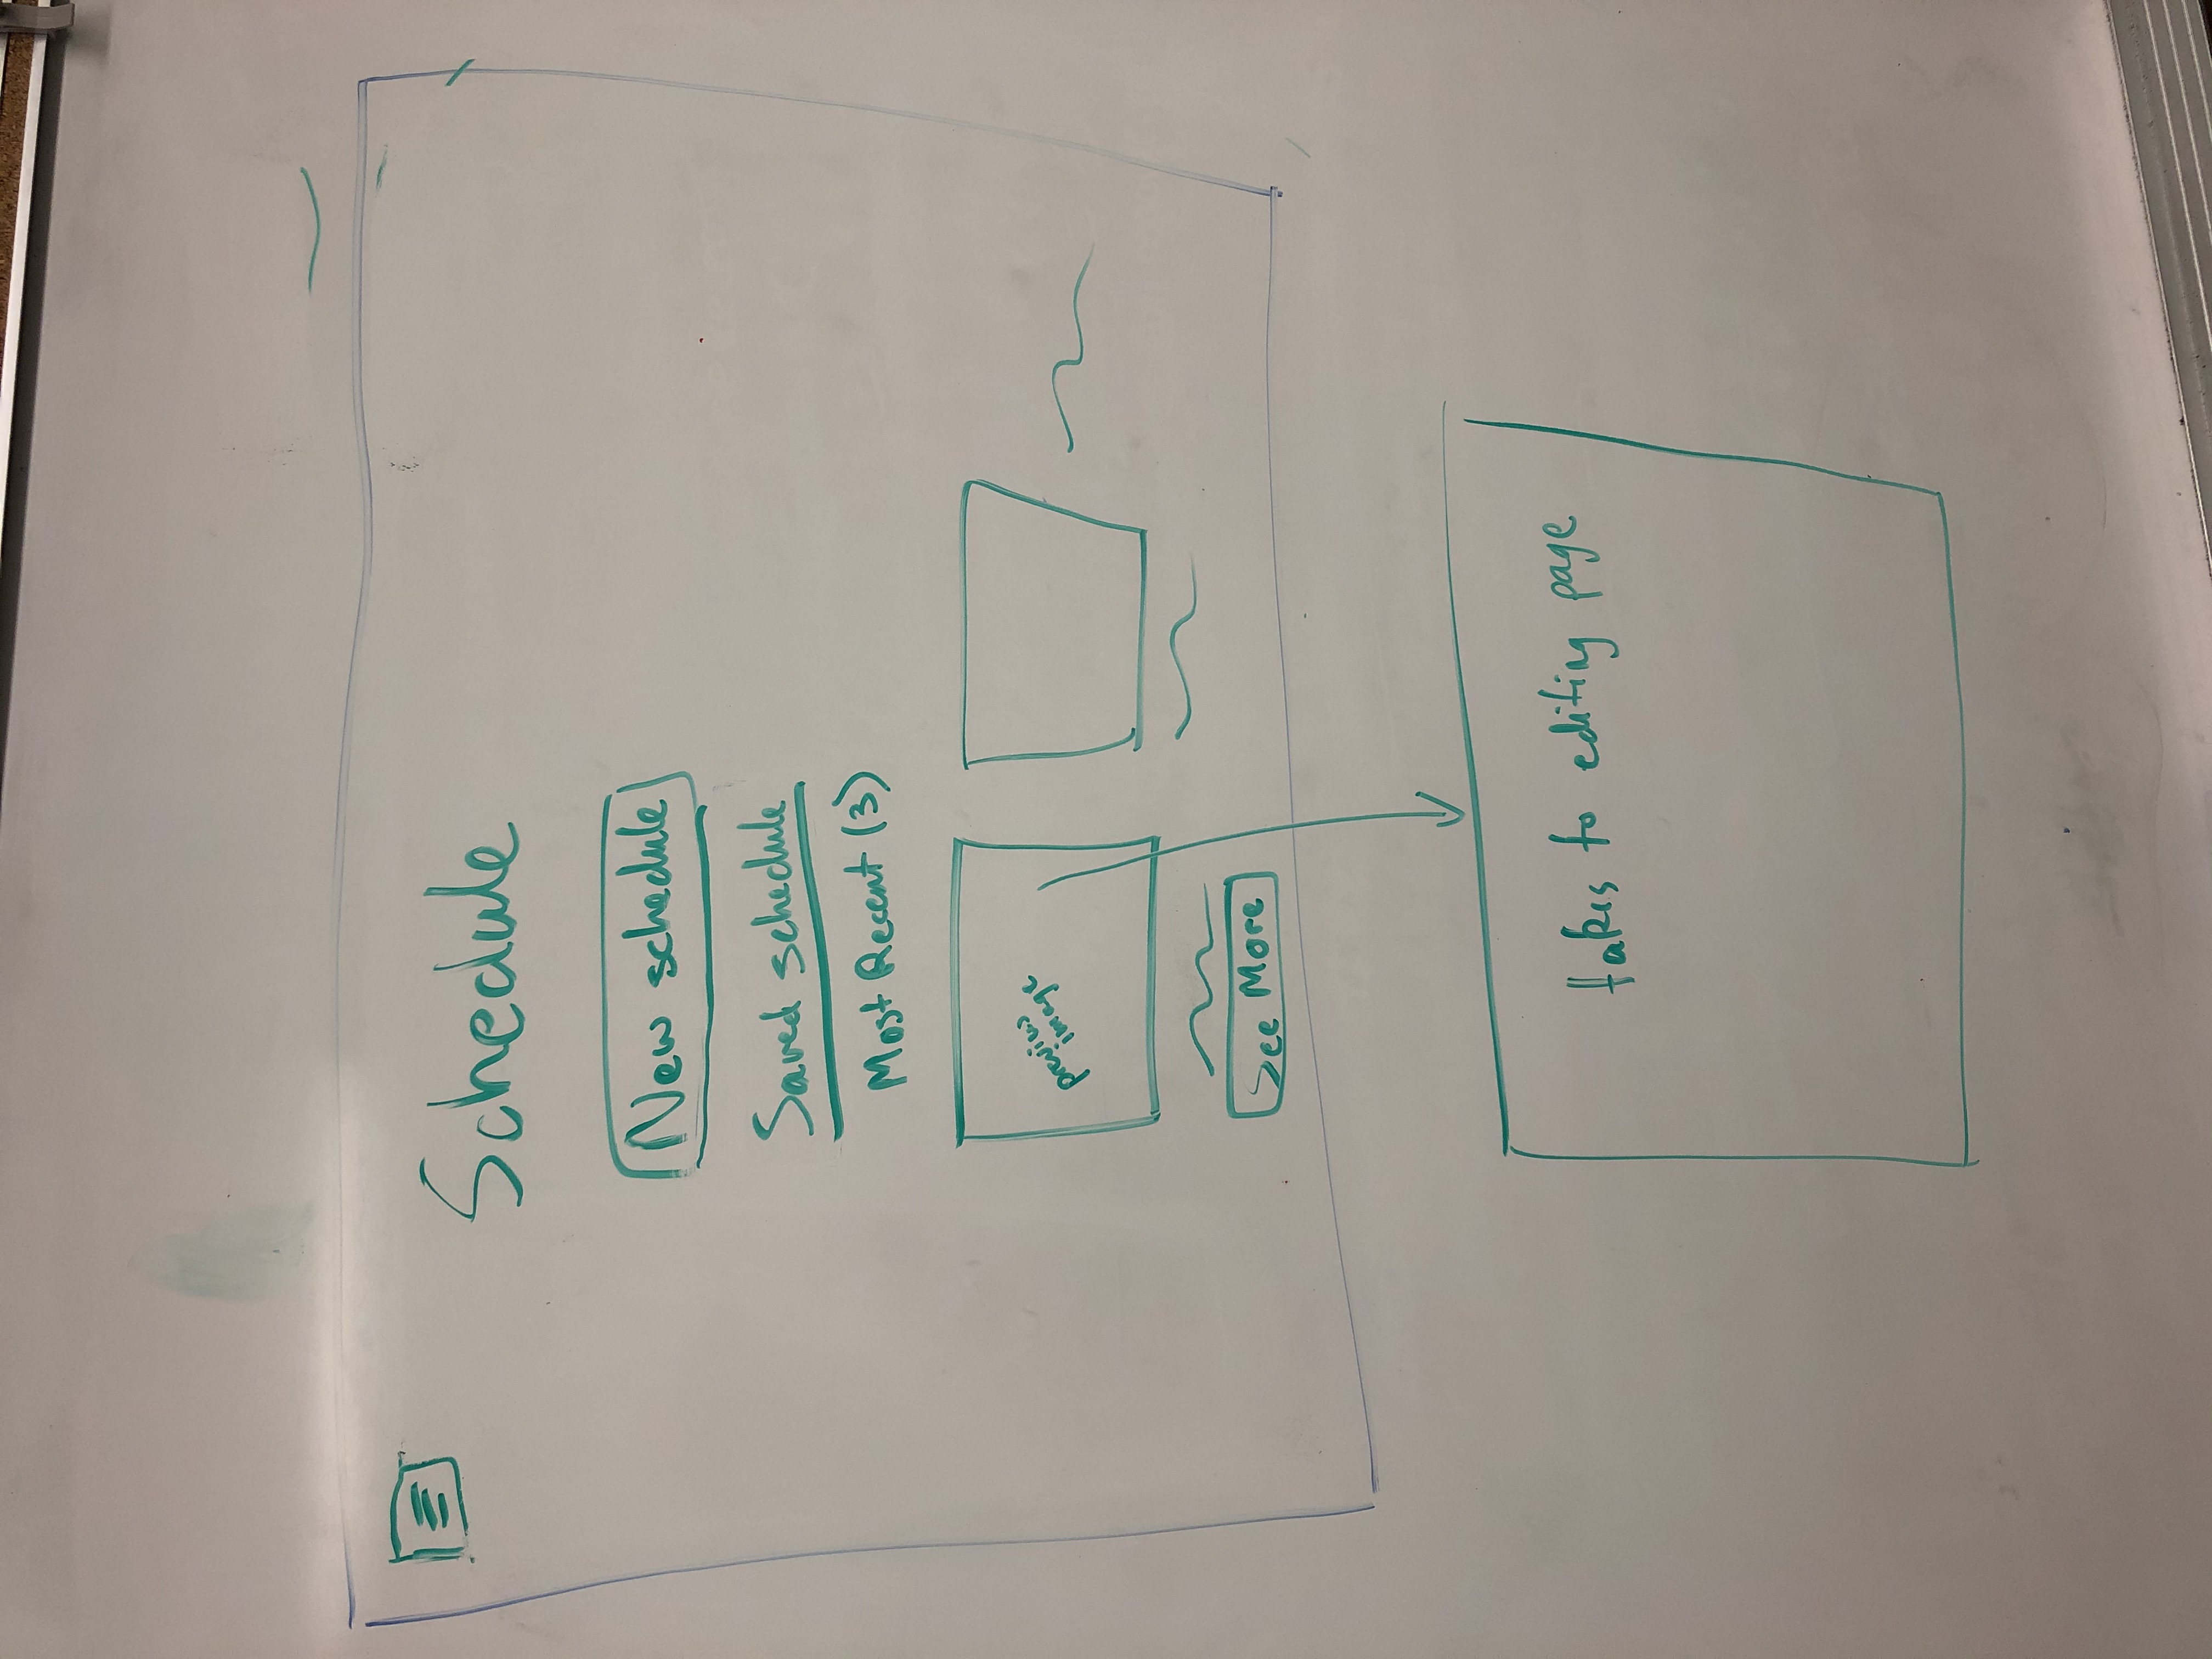 Schedule
New schedule
Saved schedule
Most Recent (3)
preview
image
See More
takes to editing page